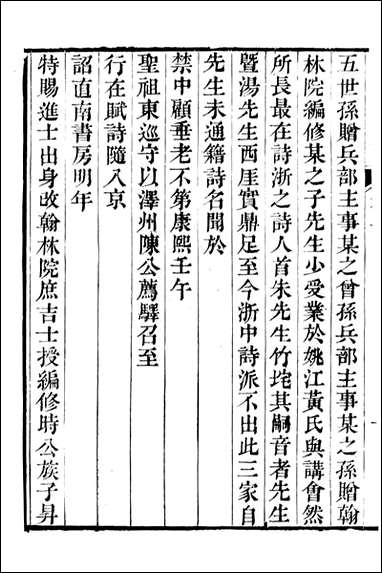 五世孫贈兵部主事某之曾孫兵部主事某之孫贈翰
林院編修某之子先生少受業於姚江黃氏與講會然
所長最在詩浙之詩人首朱先生竹垞其嗣音者先生
暨湯先生西厓實鼎足至今浙中詩派不出此三家自
先生未通籍詩名聞於
禁中顧垂老不第康熙壬午
聖祖東巡守以澤州陳公薦驛召至
行在賦詩隨入京
詔直南書房明年
特賜進士出身改翰林院庶吉士授編修時公族子昇